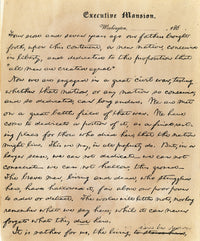 Executive Mansion,
Washington, 186
Four score and seven years ago our fathers brought
forth, upon this continent, a new nation, conceived
in liberty, and dedicated to the proposition that
"all men are created equal"
Now we are engaged in a great civil war, testing
whether that nation, or any nation so conceived,
and so dedicated, can long endure. We are met
on a great battle field of that war. We have
come to dedicate a portion of it, as a final rest-
ing place for those who died here, that the nation
might live. This we may, in all propriety do. But, in a
larger sense, we can not dedicate — we can not
consecrate — we can not hallow, this ground —
The brave men, living and dead, who struggled
here, have hallowed it, far above our poor power
to add or detract. The world will little note, nor long
remember what we say here; while it can never
forget what they did here.
It is rather for us, the living,